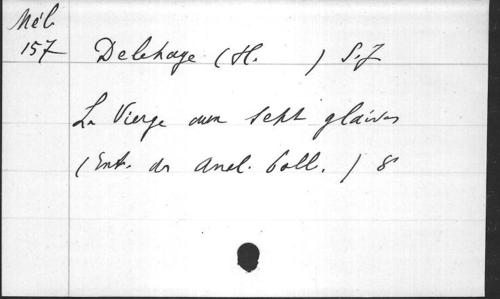 Mél.
157
Delehaye (H. ) S.J
La Vierge aux sept glaives
(Ext. des Anal. Boll. ) 8°